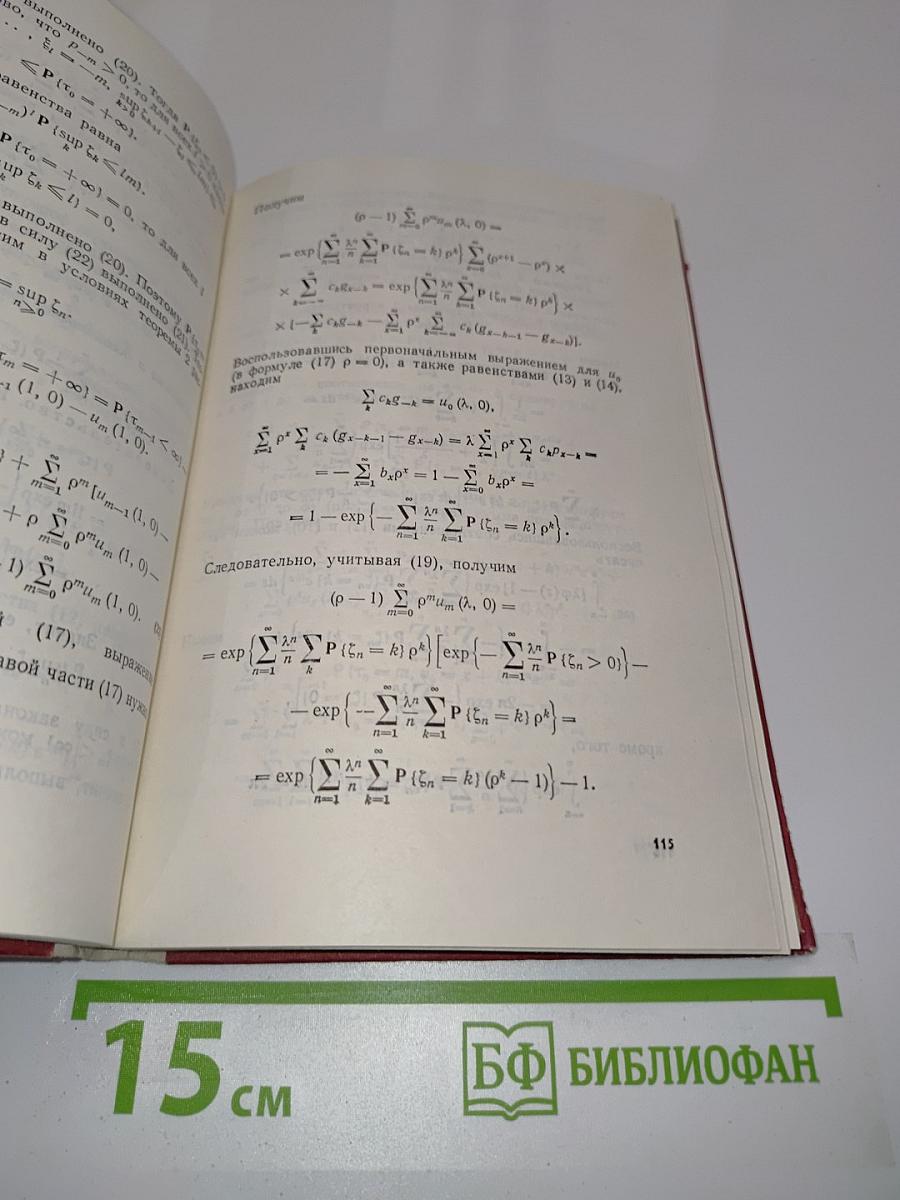 выполнено (20). Тогда
что p₋ₘ > 0, то для всех
≤ P {τ₀ = +∞}.
равенства равна
P {sup ζₖ ≤ lm}.
P {τ₀ = +∞} = 0, то для всех l
sup ζₖ ≤ l} = 0,
выполнено (20). Поэтому
в силу (22) выполнено (21).
в условиях теоремы 2
= sup ζₙ.
n≥0
τₘ = +∞} = P {τₘ₋₁ <
(1, 0) — uₘ (1, 0).
+ ∑_{m=1}^{∞} ρᵐ [uₘ₋₁ (1, 0) —
+ ρ ∑_{m=0}^{∞} ρᵐuₘ (1, 0) —
1) ∑_{m=0}^{∞} ρᵐuₘ (1, 0).
(17), выражени
правой части (17) нужн
Получим
(ρ — 1) ∑_{m=0}^{∞} ρᵐuₘ (λ, 0) =
= exp {∑_{n=1}^{∞} λⁿ/n ∑_{k=1}^{∞} P {ζₙ = k} ρᵏ} ∑_{x=0}^{∞} (ρˣ⁺¹ — ρˣ) ×
× ∑_{k=—∞}^{∞} cₖgₓ₋ₖ = exp {∑_{n=1}^{∞} λⁿ/n ∑_{k=1}^{∞} P {ζₙ = k} ρᵏ} ×
× [—∑_{k} cₖg₋ₖ — ∑_{x=1}^{∞} ρˣ ∑_{k=—∞}^{∞} cₖ (gₓ₋ₖ₋₁ — gₓ₋ₖ)].
Воспользовавшись первоначальным выражением для u₀
(в формуле (17) ρ = 0), а также равенствами (13) и (14),
находим
∑_{k} cₖg₋ₖ = u₀ (λ, 0),
∑_{x=1}^{∞} ρˣ ∑_{k} cₖ (gₓ₋ₖ₋₁ — gₓ₋ₖ) = λ ∑_{x=1}^{∞} ρˣ ∑_{k} cₖpₓ₋ₖ =
= — ∑_{x=1}^{∞} bₓρˣ = 1 — ∑_{x=0}^{∞} bₓρˣ =
= 1 — exp {— ∑_{n=1}^{∞} λⁿ/n ∑_{k=1}^{∞} P {ζₙ = k} ρᵏ}.
Следовательно, учитывая (19), получим
(ρ — 1) ∑_{m=0}^{∞} ρᵐuₘ (λ, 0) =
= exp {∑_{n=1}^{∞} λⁿ/n ∑_{k} P {ζₙ = k} ρᵏ} [exp {— ∑_{n=1}^{∞} λⁿ/n P {ζₙ > 0}} —
— exp {— ∑_{n=1}^{∞} λⁿ/n ∑_{k=1}^{∞} P {ζₙ = k} ρᵏ} =
= exp {∑_{n=1}^{∞} λⁿ/n ∑_{k=1}^{∞} P {ζₙ = k} (ρᵏ — 1)} — 1.
115
15 см
БФ БИБЛИОФАН